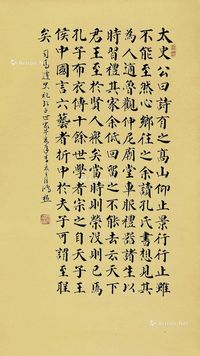 太史公曰詩有之高山仰止景行行止雖
不能至然心鄉往之余讀孔氏書想見其
為人適魯觀仲尼廟堂車服禮器諸生以
時習禮其家余低回留之不能去云天下
君王至於賢人衆矣當時則榮沒則已焉
孔子布衣傳十餘世學者宗之自天子王
侯中國言六藝者折中於夫子可謂至聖
矣 司馬遷史記孔子世家